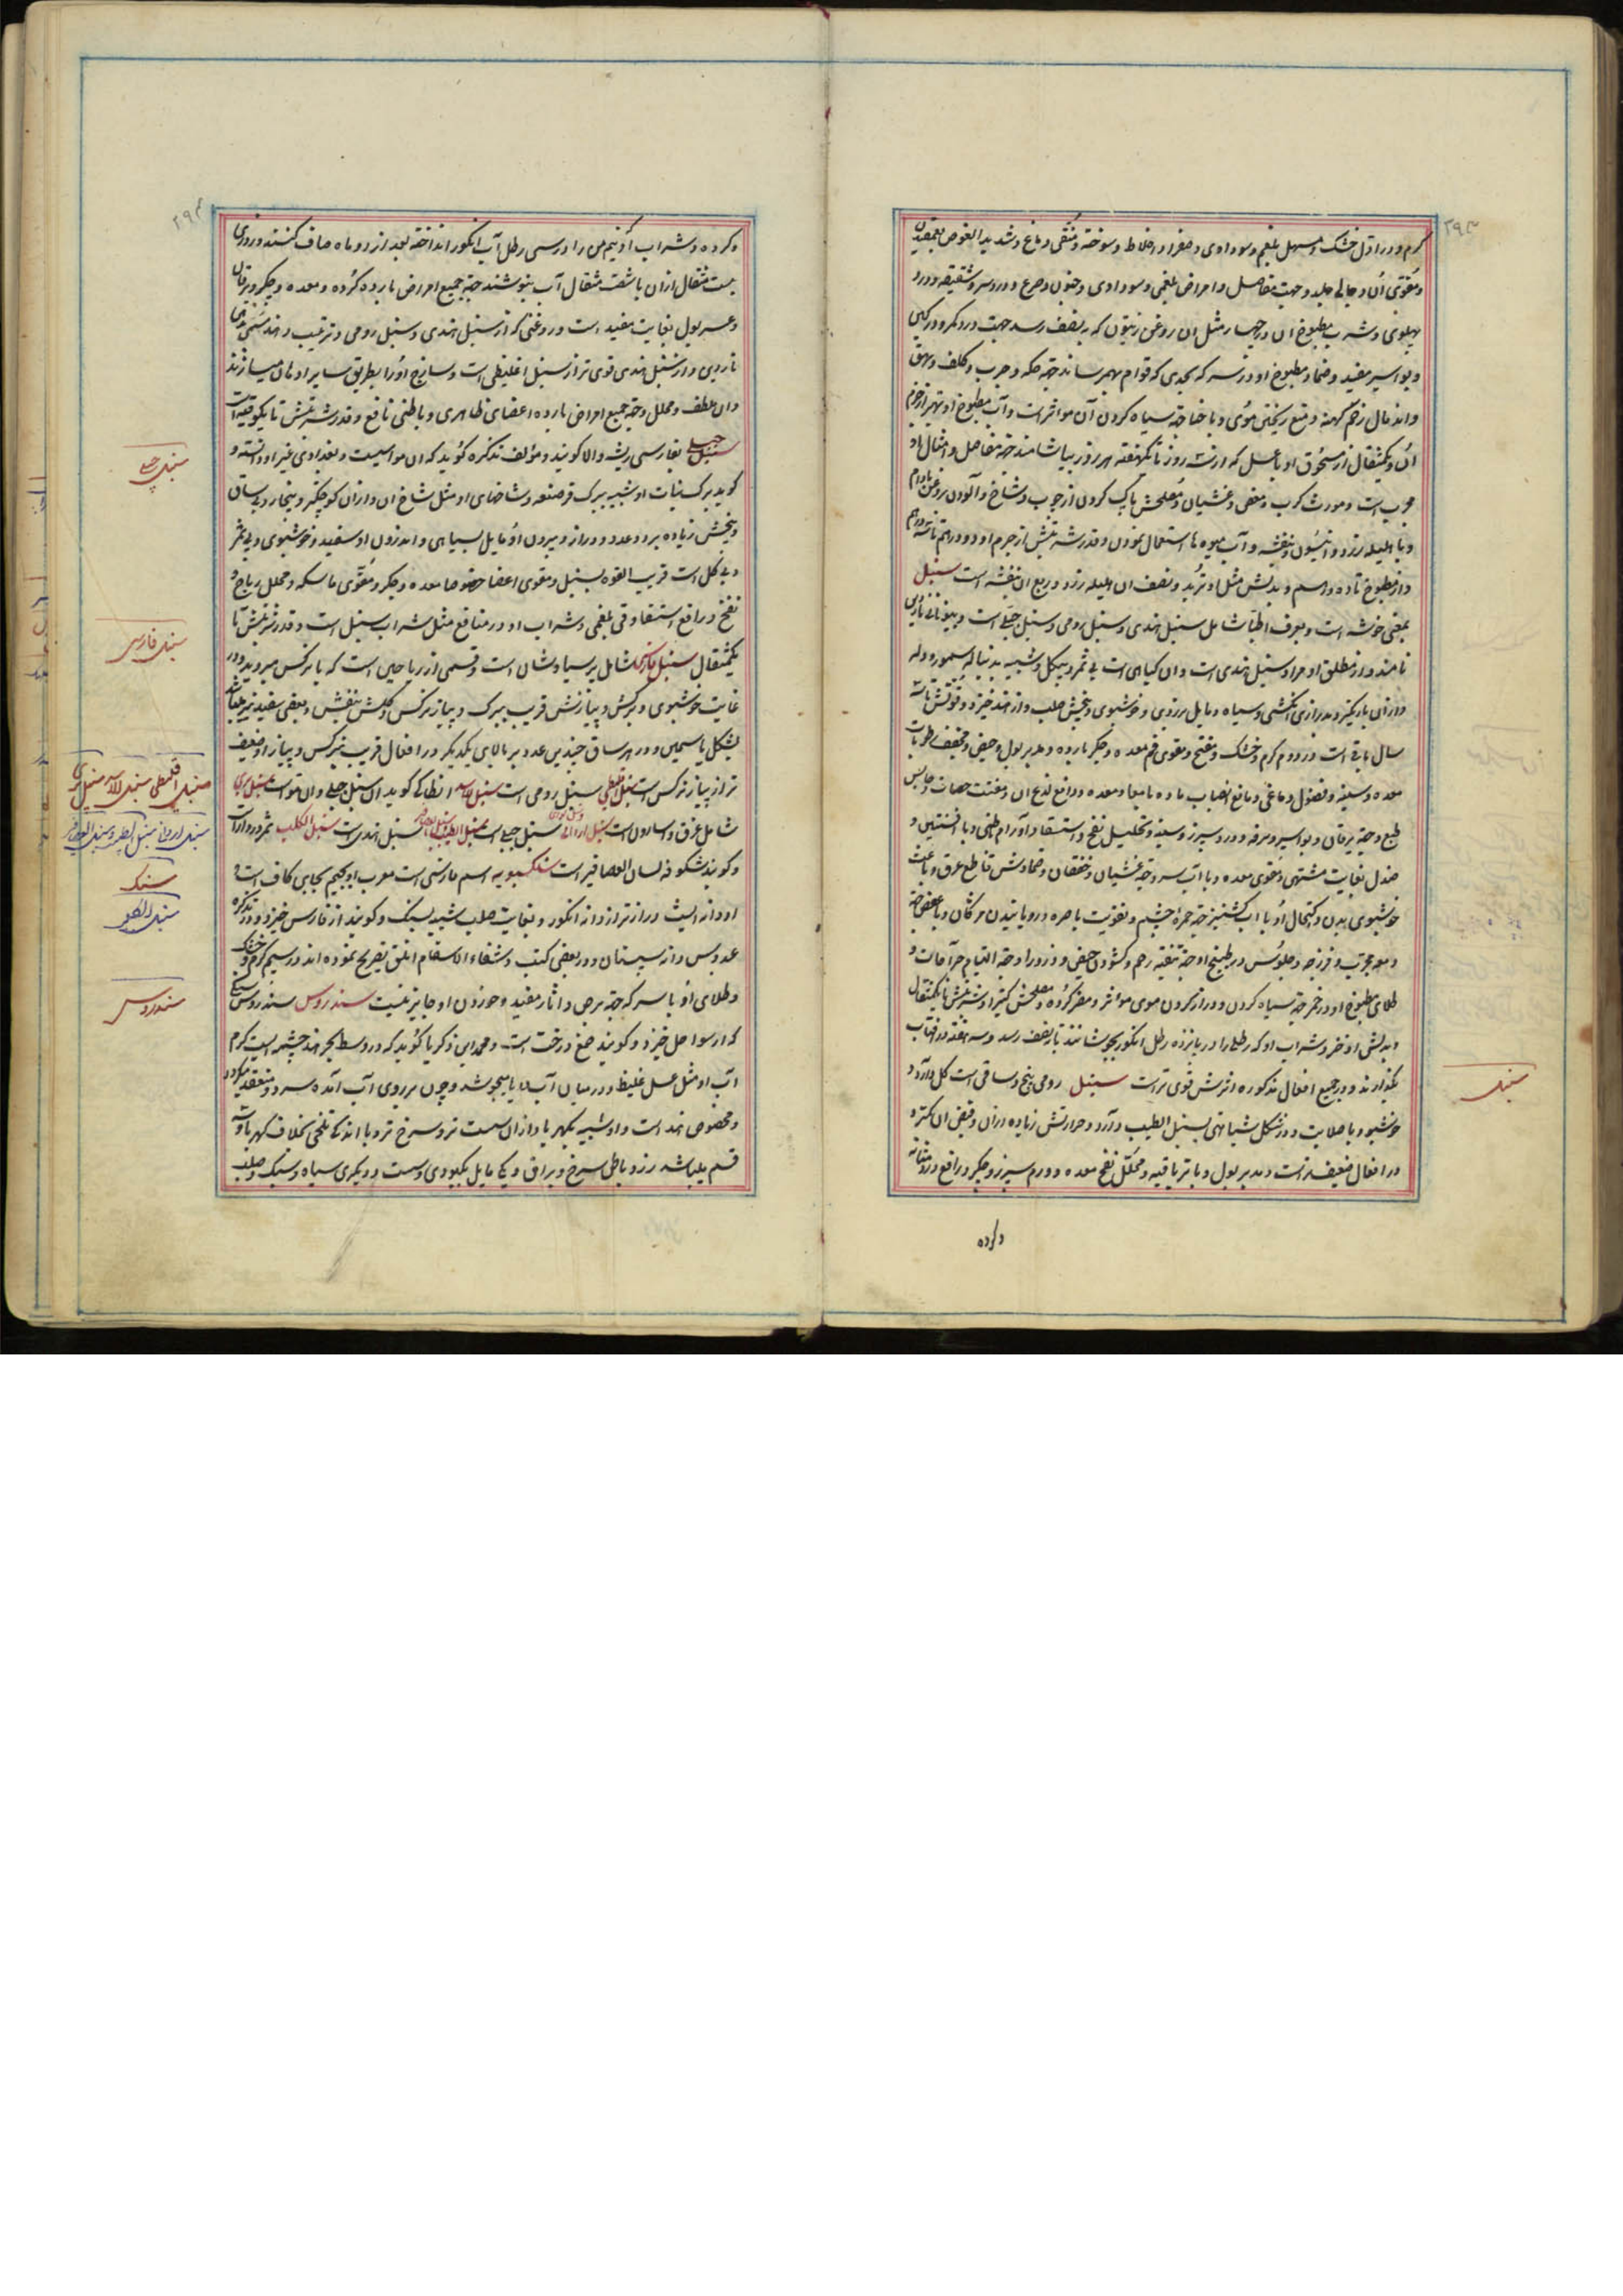 ۲۹۳
گرم و در اول خشک و مسهل بلغم و سوداوی و صفرا و اخلاط سوخته و منقی دماغ و شدید الغوص
و مقوی آن و جالی جلد و جهت مفاصل و امراض بلغمی و سوداوی و جنون و صرع و درد سر و شقیقه و درد
پهلو و شرب مطبوخ آن در چهار مثل آن روغن زیتون که به نصف رسد جهت درد کمر و درد
و بواسیر مفید و ضماد مطبوخ او در سرکه بحدی که قوام بهم رساند جهة حکه و جرب و کلف و بهق
و اندمال زخم کهنه و منع ریختن موی و با حنا جهة سیاه کردن آن مؤثر است و آب مطبوخ او
و یکمثقال از مسحوق او با عسل که از سه روز تا یکهفته هر روز بیاشامند جهة مفاصل و امثال او
مجرب است و مورث کرب و مغص و غثیان و مصلحش پاک کردن از چوب و شاخ و آلودن بروغن بادام
و با هلیله زرد و انیسون و بنفشه و آب میوه‌ها استعمال نمودن و قدر شربتش از جرم او دو درهم تا سه درهم
و از مطبوخ تا ده درهم و بدلش مثل او تربد و نصف آن هلیله زرد و ربع آن بنفشه است سنبل
بمعنی خوشه است و بعرف اطبا شامل سنبل هندی و سنبل رومی و سنبل جبلی است و بیونانی ناردین
نامند و از مطلق او مراد سنبل هندی است و آن گیاهی است بی ثمر و بیگل و شبیه بدنباله سمور و دله
و از آن باریکتر و بدرازی انگشتی و سیاه و مایل بزردی و خوشبوی و بیخش صلب و از هند خیزد و قوتش تا سه
سال باقی است در دوم گرم و خشک و مفتح و مقوی فم معده و جگر بارده و مدر بول و حیض و مجفف رطوبات
معده و سینه و فضول دماغی و مانع انصباب ماده بامعا و معده و رافع لذع آن و مفتت حصات و حابس
طبع و جهة یرقان و بواسیر و سرفه و درد سپرز و سینه و تحلیل نفخ و استسقا و اورام باطنی و با افسنتین و
صندل بغایت مشتهی و مقوی معده و با آب سرد جهة غثیان و خفقان و ضمادش قاطع عرق و باعث
خوشبوی بدن و اکتحال او با آب گشنیز جهة حمرة چشم و تقویت باصره و رویانیدن مژگان و با عفص جهة
دمعه مجرب و فرزجه و جلوس در طبیخ او جهة تنقیه رحم و گشودن حیض و ذرور او جهة التیام جراحات و
طلای مطبوخ او در خمر جهة سیاه کردن و دراز کردن موی مؤثر و مضر گرده و مصلحش کتیرا و شربتش تا یکمثقال
و بدلش اذخر و شراب او که رطلی را در پانزده رطل انگور بجوشانند تا بنصف رسد و سه هفته در آفتاب
بگذارند و در جمیع افعال مذکوره اثرش قوی تر است سنبل رومی بیخ و ساقی است گل دار و
خوشبو و با صلابت و در شکل شباهتی بسنبل الطیب دارد و حرارتش زیاده از آن و قبض آن کمتر و
در افعال ضعیفتر است و مدر بول و با تریاقیه و محلل نفخ معده و ورم سپرز و جگر و رافع درد مثانه
سنبل
و گرده
۲۹۴
و گرده و شراب او نیم من را در سی رطل آب انگور انداخته بعد از دو ماه صاف کنند و روزی
بیست مثقال از آن با شصت مثقال آب بنوشند جهة جمیع امراض بارده گرده و معده و جگر و یرقان
و عسر بول بغایت مفید است و روغنی که از سنبل هندی و سنبل رومی و ترتیب دهند مسمی بدهن
ناردین و از سنبل هندی قوی تر از سنبل اغلیطی است و سازج او را بطریق سایر ادهان میسازند
و آن ملطف و محلل و جهة جمیع امراض بارده اعضای ظاهری و باطنی نافع و قدر شربتش تا یکوقیه است
سنبل جبلی بفارسی ریشه والا گویند و مؤلف تذکره گوید که آن مو است و بغدادی غیر او دانسته و
گوید برگ نبات او شبیه ببرگ قرصعنه و شاخهای او مثل شاخ آن و از آن کوچکتر و بیخار و بی ساق
و بیخش زیاده بر دو عدد و دراز و بیرون او مایل بسیاهی و اندرون او سفید و خوشبوی و بی ثمر
و بی گل است قریب القوه بسنبل و مقوی اعضا خصوصا معده و جگر و مقوی ماسکه و محلل ریاح و
نفخ و رافع استسقا و قی بلغمی و شراب او در منافع مثل شراب سنبل است و قدر شربتش تا
یکمثقال سنبل فارسی شامل پرسیاوشان است و قسمی از ریاحین است که با نرگس میروید و در
غایت خوشبوی و برگش و پیازش قریب ببرگ و پیاز نرگس و گلش بنفش و بعضی سفید نیز میباشد
بشکل یاسمین و در هر ساق چندین عدد بر بالای یکدیگر در افعال قریب بنرگس و پیاز او ضعیف
تر از پیاز نرگس است سنبل اقلیطی سنبل رومی است سنبل الاسد انطاکی گوید آن سنبل جبلی و آن مو است سنبل بری
شامل غرق و اسارون است سنبل ایرانی سنبل جبلی است سنبل الطیب سنبل هندی است سنبل الکلب ثمر دردار است
و گویند شکوفه لسان العصافیر است سنکسبویه اسم فارسی است معرب او بجیم بجای کاف است و
او دانه ایست درازتر از دانه انگور و بغایت صلب شبیه بسنگ و گویند از فارس خیزد و در تذکره
عدوبس دانه سیستان و در بعضی کتب و شفاء الاسقام اثلق تصریح نموده اند در سیم گرم و خشک
و طلای او با سرکه جهة برص و آثار مفید و خوردن او جایز نیست سندروس سندروس صمغی
که از سواحل خیزد و گویند صمغ درخت است و محمد ابن زکریا گوید که در وسط بحر هند چشمه ایست گرم
آب او مثل عسل غلیظ و در میان آب دریا میجوشد و چون بر روی آب آمده سرد و منعقد میگردد
و مخصوص هند است و او شبیه بکهربا و از آن سست تر و سرخ تر و با اندک تلخی بخلاف کهربا و سه
قسم میباشد زرد با طل سرخ و براق و یکی مایل بکبودی و سست و دیگری سیاه و سبک و صلب
سنبل جبلی
سنبل فارسی
سنبل اقلیطی سنبل الاسد سنبل بری
سنبل ایرانی سنبل الطیب و سنبل العصافیر
سنبل الکلب
سندروس